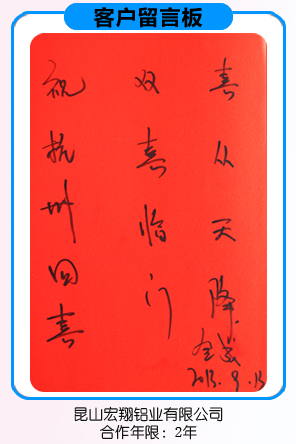 客户留言板
祝杭州四喜
双喜临门
喜从天降
昆山宏翔铝业有限公司
合作年限：2年